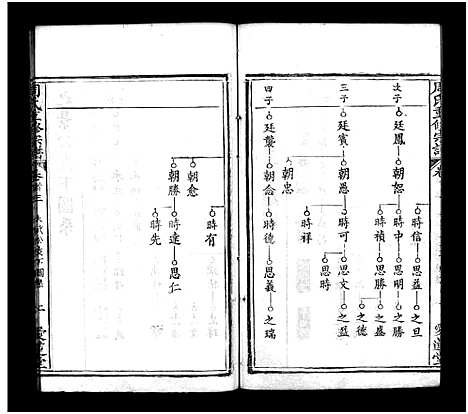 周氏重修宗譜
次子 廷鳳 朝恕 時信 思益 之旦
時中 思明 之勝
時禎 思勝 之盛
之德
三子 廷賓 朝愚 時可 思文 之益
思時
時祥
朝忠
四子 廷襲 朝念 時德 思義 之瑞
愛蓮堂
朝愈 時有
朝勝 時達 思仁
時先
周氏重修宗譜
愛蓮堂